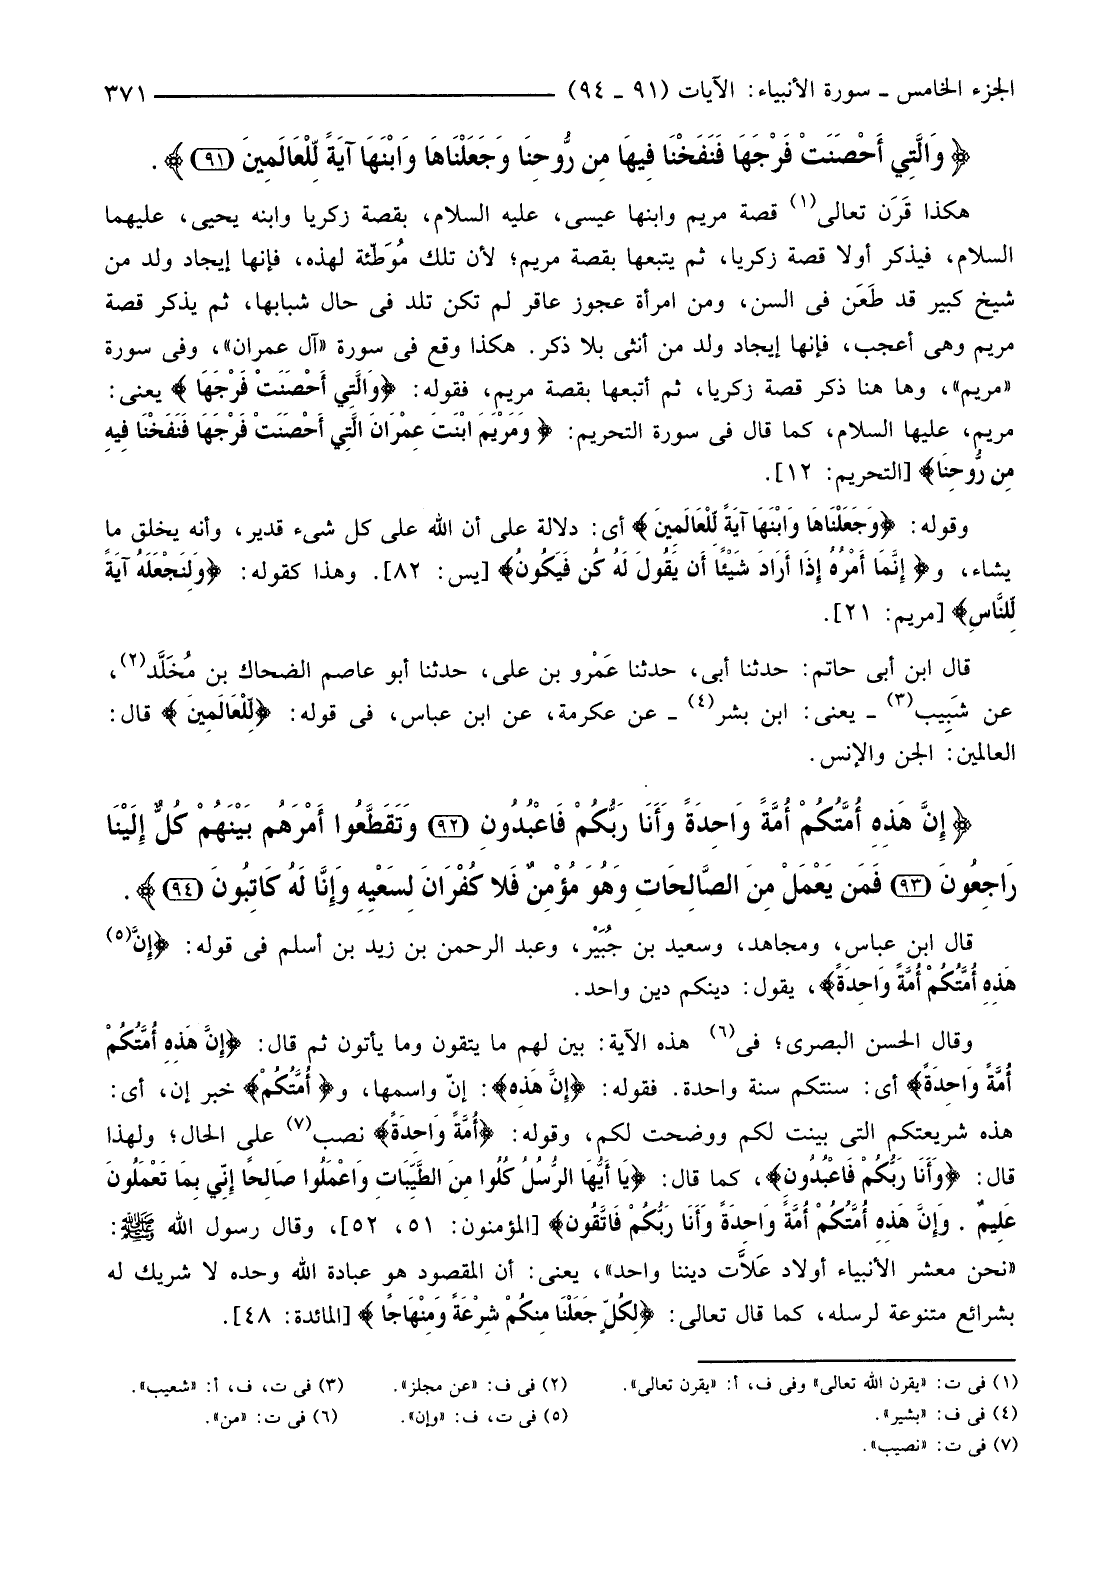 الجزء الخامس ـ سورة الأنبياء: الآيات (٩١ ـ ٩٤) ٣٧١
﴿ وَالَّتِي أَحْصَنَتْ فَرْجَهَا فَنَفَخْنَا فِيهَا مِن رُّوحِنَا وَجَعَلْنَاهَا وَابْنَهَا آيَةً لِّلْعَالَمِينَ (٩١) ﴾ .
هكذا قَرَن تعالى(١) قصة مريم وابنها عيسى، عليه السلام، بقصة زكريا وابنه يحيى، عليهما
السلام، فيذكر أولا قصة زكريا، ثم يتبعها بقصة مريم؛ لأن تلك مُوَطّئة لهذه، فإنها إيجاد ولد من
شيخ كبير قد طَعَن فى السن، ومن امرأة عجوز عاقر لم تكن تلد فى حال شبابها، ثم يذكر قصة
مريم وهى أعجب، فإنها إيجاد ولد من أنثى بلا ذكر. هكذا وقع فى سورة «آل عمران»، وفى سورة
«مريم»، وها هنا ذكر قصة زكريا، ثم أتبعها بقصة مريم، فقوله: ﴿وَالَّتِي أَحْصَنَتْ فَرْجَهَا ﴾ يعنى:
مريم، عليها السلام، كما قال فى سورة التحريم: ﴿ وَمَرْيَمَ ابْنَتَ عِمْرَانَ الَّتِي أَحْصَنَتْ فَرْجَهَا فَنَفَخْنَا فِيهِ
مِن رُّوحِنَا﴾ [التحريم: ١٢].
وقوله: ﴿وَجَعَلْنَاهَا وَابْنَهَا آيَةً لِّلْعَالَمِينَ ﴾ أى: دلالة على أن الله على كل شىء قدير، وأنه يخلق ما
يشاء، و﴿ إِنَّمَا أَمْرُهُ إِذَا أَرَادَ شَيْئًا أَن يَقُولَ لَهُ كُن فَيَكُونُ﴾ [يس: ٨٢]. وهذا كقوله: ﴿وَلِنَجْعَلَهُ آيَةً
لِّلنَّاسِ﴾ [مريم: ٢١].
قال ابن أبى حاتم: حدثنا أبى، حدثنا عَمْرو بن على، حدثنا أبو عاصم الضحاك بن مُخَلَّد(٢)،
عن شَبِيب(٣) ـ يعنى: ابن بشر(٤) ـ عن عكرمة، عن ابن عباس، فى قوله: ﴿لِّلْعَالَمِينَ ﴾ قال:
العالمين: الجن والإنس.
﴿ إِنَّ هَذِهِ أُمَّتُكُمْ أُمَّةً وَاحِدَةً وَأَنَا رَبُّكُمْ فَاعْبُدُونِ (٩٢) وَتَقَطَّعُوا أَمْرَهُم بَيْنَهُمْ كُلٌّ إِلَيْنَا
رَاجِعُونَ (٩٣) فَمَن يَعْمَلْ مِنَ الصَّالِحَاتِ وَهُوَ مُؤْمِنٌ فَلا كُفْرَانَ لِسَعْيِهِ وَإِنَّا لَهُ كَاتِبُونَ (٩٤) ﴾ .
قال ابن عباس، ومجاهد، وسعيد بن جُبَيْر، وعبد الرحمن بن زيد بن أسلم فى قوله: ﴿إِنَّ(٥)
هَذِهِ أُمَّتُكُمْ أُمَّةً وَاحِدَةً﴾، يقول: دينكم دين واحد.
وقال الحسن البصرى؛ فى(٦) هذه الآية: بين لهم ما يتقون وما يأتون ثم قال: ﴿إِنَّ هَذِهِ أُمَّتُكُمْ
أُمَّةً وَاحِدَةً﴾ أى: سنتكم سنة واحدة. فقوله: ﴿إِنَّ هَذِهِ﴾: إنّ واسمها، و﴿ أُمَّتُكُمْ﴾ خبر إن، أى:
هذه شريعتكم التى بينت لكم ووضحت لكم، وقوله: ﴿أُمَّةً وَاحِدَةً﴾ نصب(٧) على الحال؛ ولهذا
قال: ﴿وَأَنَا رَبُّكُمْ فَاعْبُدُونِ﴾، كما قال: ﴿يَا أَيُّهَا الرُّسُلُ كُلُوا مِنَ الطَّيِّبَاتِ وَاعْمَلُوا صَالِحًا إِنِّي بِمَا تَعْمَلُونَ
عَلِيمٌ . وَإِنَّ هَذِهِ أُمَّتُكُمْ أُمَّةً وَاحِدَةً وَأَنَا رَبُّكُمْ فَاتَّقُونِ﴾ [المؤمنون: ٥١، ٥٢]، وقال رسول الله ﷺ:
«نحن معشر الأنبياء أولاد عَلاَّت ديننا واحد»، يعنى: أن المقصود هو عبادة الله وحده لا شريك له
بشرائع متنوعة لرسله، كما قال تعالى: ﴿لِكُلٍّ جَعَلْنَا مِنكُمْ شِرْعَةً وَمِنْهَاجًا ﴾ [المائدة: ٤٨].
(١) فى ت: «يقرن الله تعالى» وفى ف، أ: «يقرن تعالى». (٢) فى ف: «عن مجلز». (٣) فى ت، ف، أ: «شعيب».
(٤) فى ف: «بشير». (٥) فى ت، ف: «وإن». (٦) فى ت: «من».
(٧) فى ت: «نصيب».